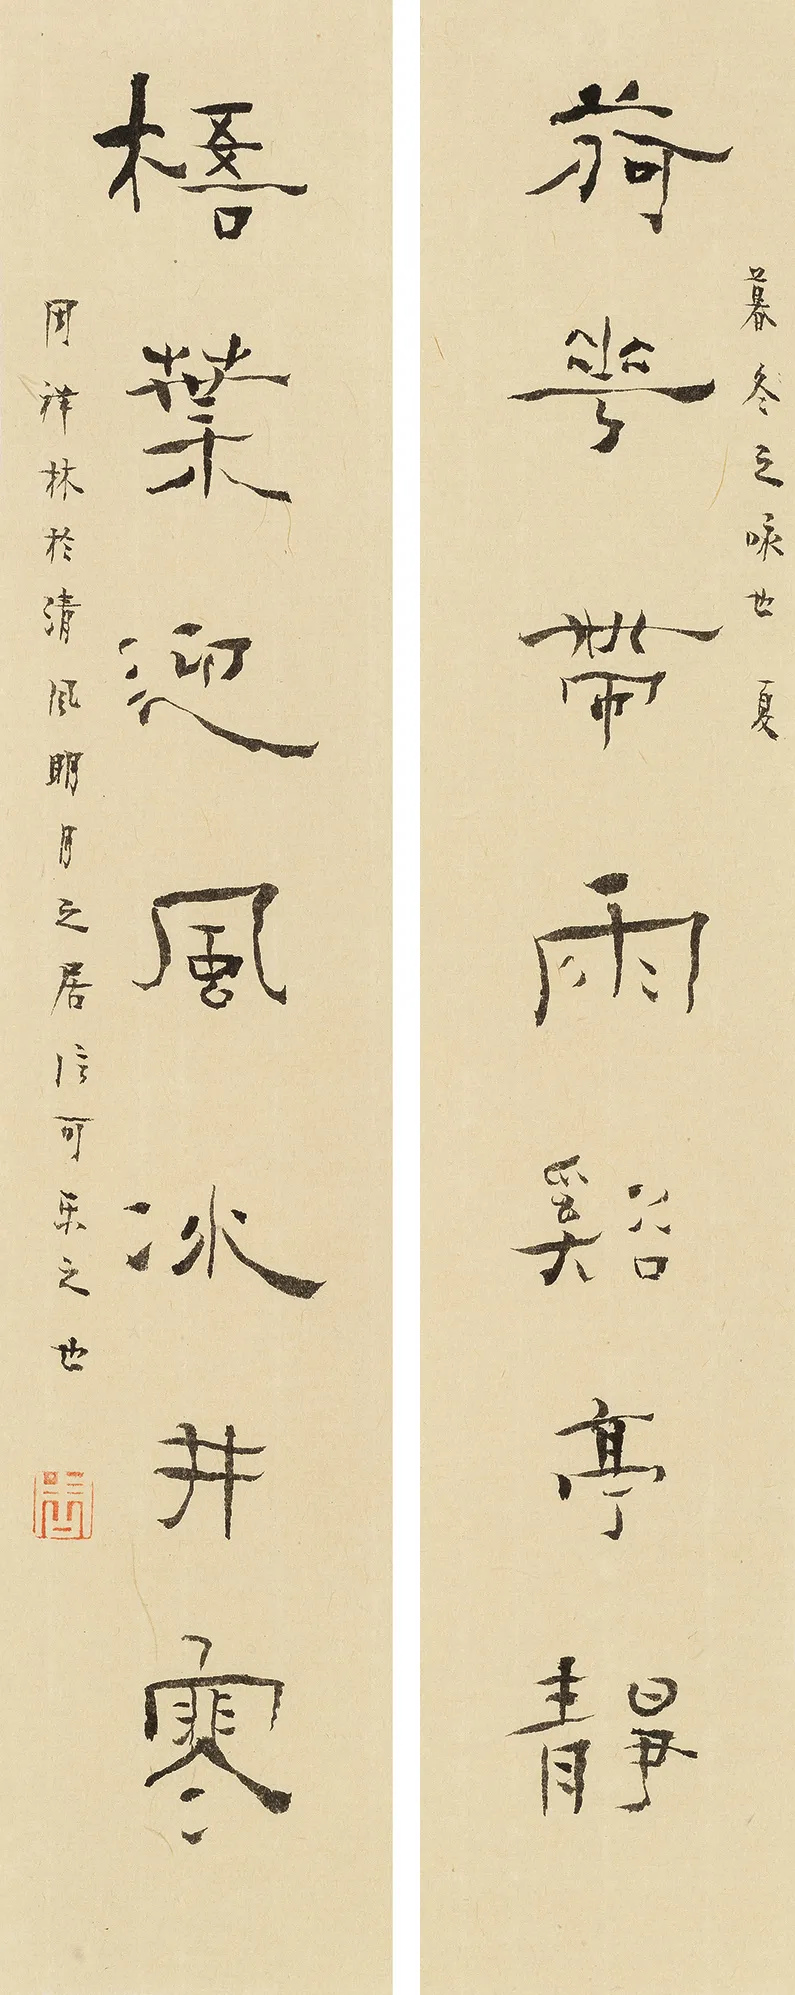 荷華帶雨谿亭靜
暮冬之咏也 夏
梧葉迎風冰井寒
周祥林於清風明月之居信可乐之也